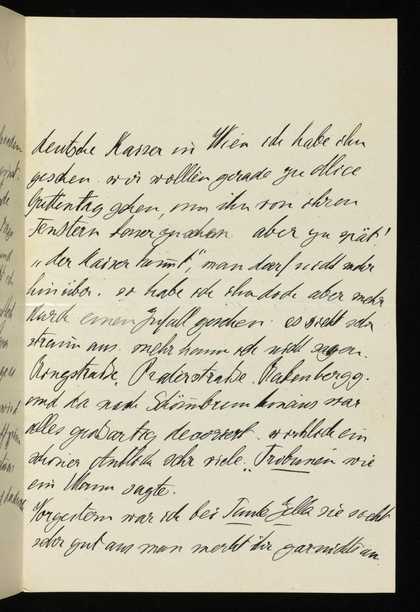 deutsche Kaiser in Wien ich habe ihn
gesehen. wir wollten gerade zu Alice
Guttentag gehen, um ihn von ihren
Fenstern besser zu sehen aber zu spät!
"der Kaiser kommt", man darf nicht mehr
hinüber. so habe ich ihn doch aber mehr
durch einen Zufall gesehen. er sieht sehr
stramm aus. mehr kann ich nicht sagen.
Ringstraße, Praterstraße, Babenbergg.
und da nach Schönbrunn hinaus war
alles großartig decoriert. wirklich ein
schöner Anblick sehr viele "Tribünen" wie
ein Mann sagte.
Vorgestern war ich bei Tante Ella sie sieht
sehr gut aus man merkt ihr gar nichts an.